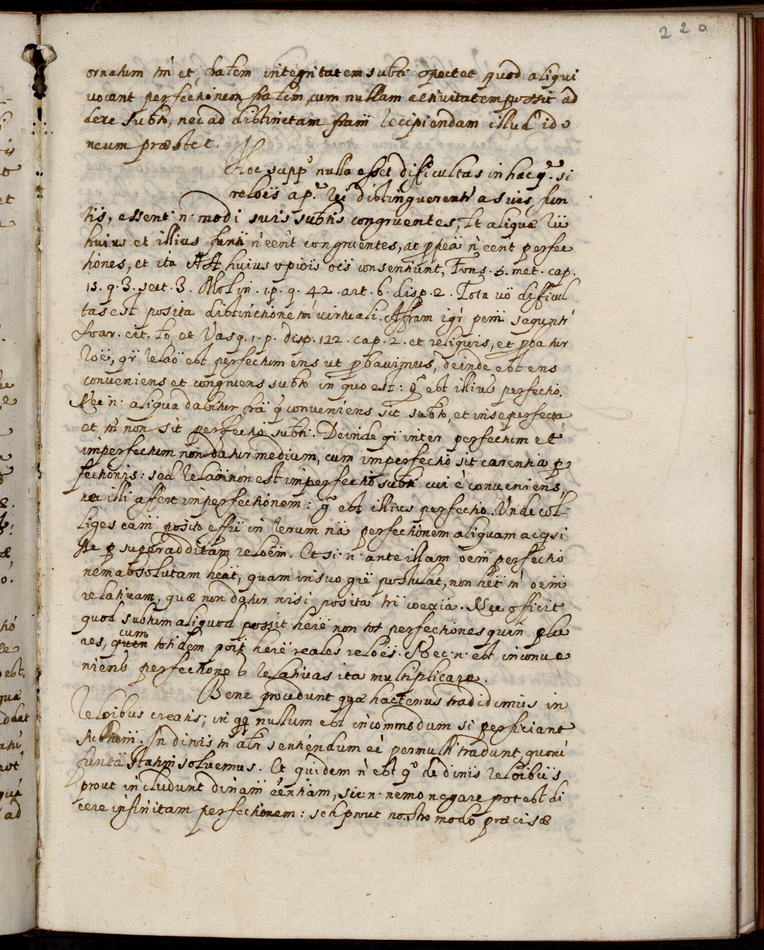 220
ornatum tñ et statem integritatem subti spectet quod aliqui
vocant perfectionem statem, cum nullam activitatem possit ad
dere subto, nec ad distinctam recipiendam illud ido
neum præstet.
Hoc supp° nulla esset dificultas in hac q. si
reloïs a p. distinguerentr a suis fun
tis, essent n. modi suis subtis congruentes, et aliquæ
huius et illius n eent congruentes, at n eent perfec
tiones, et ita huius opiois oes consentiunt, Fons. 5. met. cap.
15. q. 3. sect. 3. Molin. 1. p. q. 42. art. 6. disp. 2. Tota vo dificul
tas est posita distinctione virtuali. Affram igr seqtr
Soar. cit. to, et Vasq. 1. p. disp. 122. cap. 2. et reliquis, et pbatur
roe, qr relao est perfectum ens ut pbavimus, deinde est ens
conveniens et congruens subto in quo est: g est illius perfectio.
Nec n. aliqua dabitur q conveniens sit subto, et in se perfecta
et tñ non sit perfectio subti. Deinde qr inter perfectum et
imperfectum non datur medium, cum imperfectio sit carentia p
fectionis: sed relatio non est imperfectio subti cui e conveniens,
nec illi affert imperfectionem: g est illius perfectio. Unde col-
liges eam posito effu in rerum na perfectionem aliquam acqsi
sse p superadditam reloem. Et si n. ante illam oem perfectio
nem absolutam heat, quam in suo gre postulat, non het tñ oem
relativam, quæ non datur nisi posita tri coexia. Nec officit
quod subtum aliquod possit here non tot perfectiones quin plu
res, cum totidem possit here reales reloes. Hoc n. est inconve
niens perfectiones relativas ita multiplicare.
Bene procedunt quæ hactenus tradidimus in
reloibus creatis; in qq nullum est incommodum si perficiant
In dinis tñ atr sentiendum ee permulti tradunt, quoru
funta statim solvemus. Et quidem n est q de dinis reloibus
prout includunt dinam eentiam, sic n. nemo negare potest di
cere infinitam perfectionem: sed prout nostro modo præcisæ